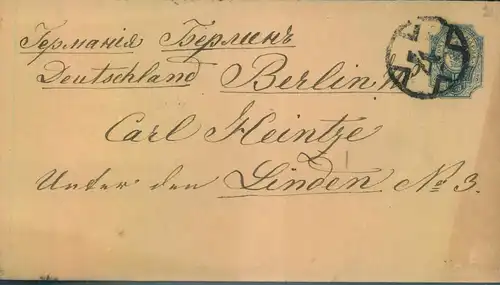 Германія Берлинъ
Deutschland Berlin
Carl Heintze
Unter den Linden No 3.